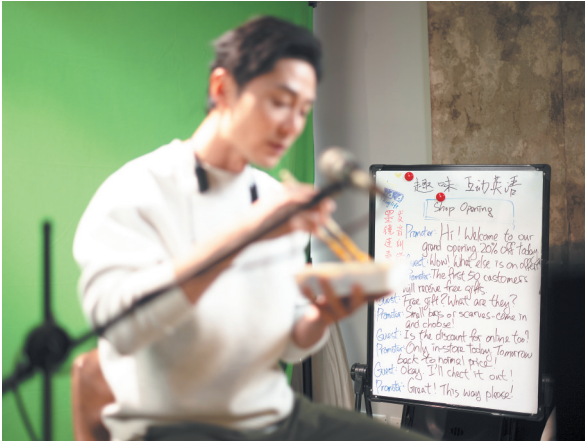 趣味 互动英语
Shop Opening
Promoter: Hi! Welcome to our
grand opening 20% off today
Guest: Wow! What else is on offer?
Promoter: The first 50 customers
will receive free gifts
Guest: Free gift? What are they?
Promoter: Small bags or scarves-come in
and choose!
Guest: Is the discount for online too?
Promoter: Only in-store today. Tomorrow
back to normal price!
Guest: Okay. I'll check it out!
Promoter: Great! This way please!